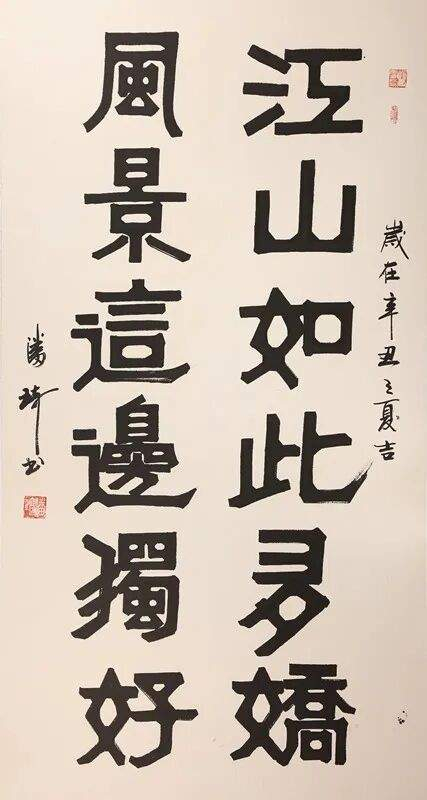 歲在辛丑之夏吉
江山如此多嬌
風景這邊獨好
潘琦书